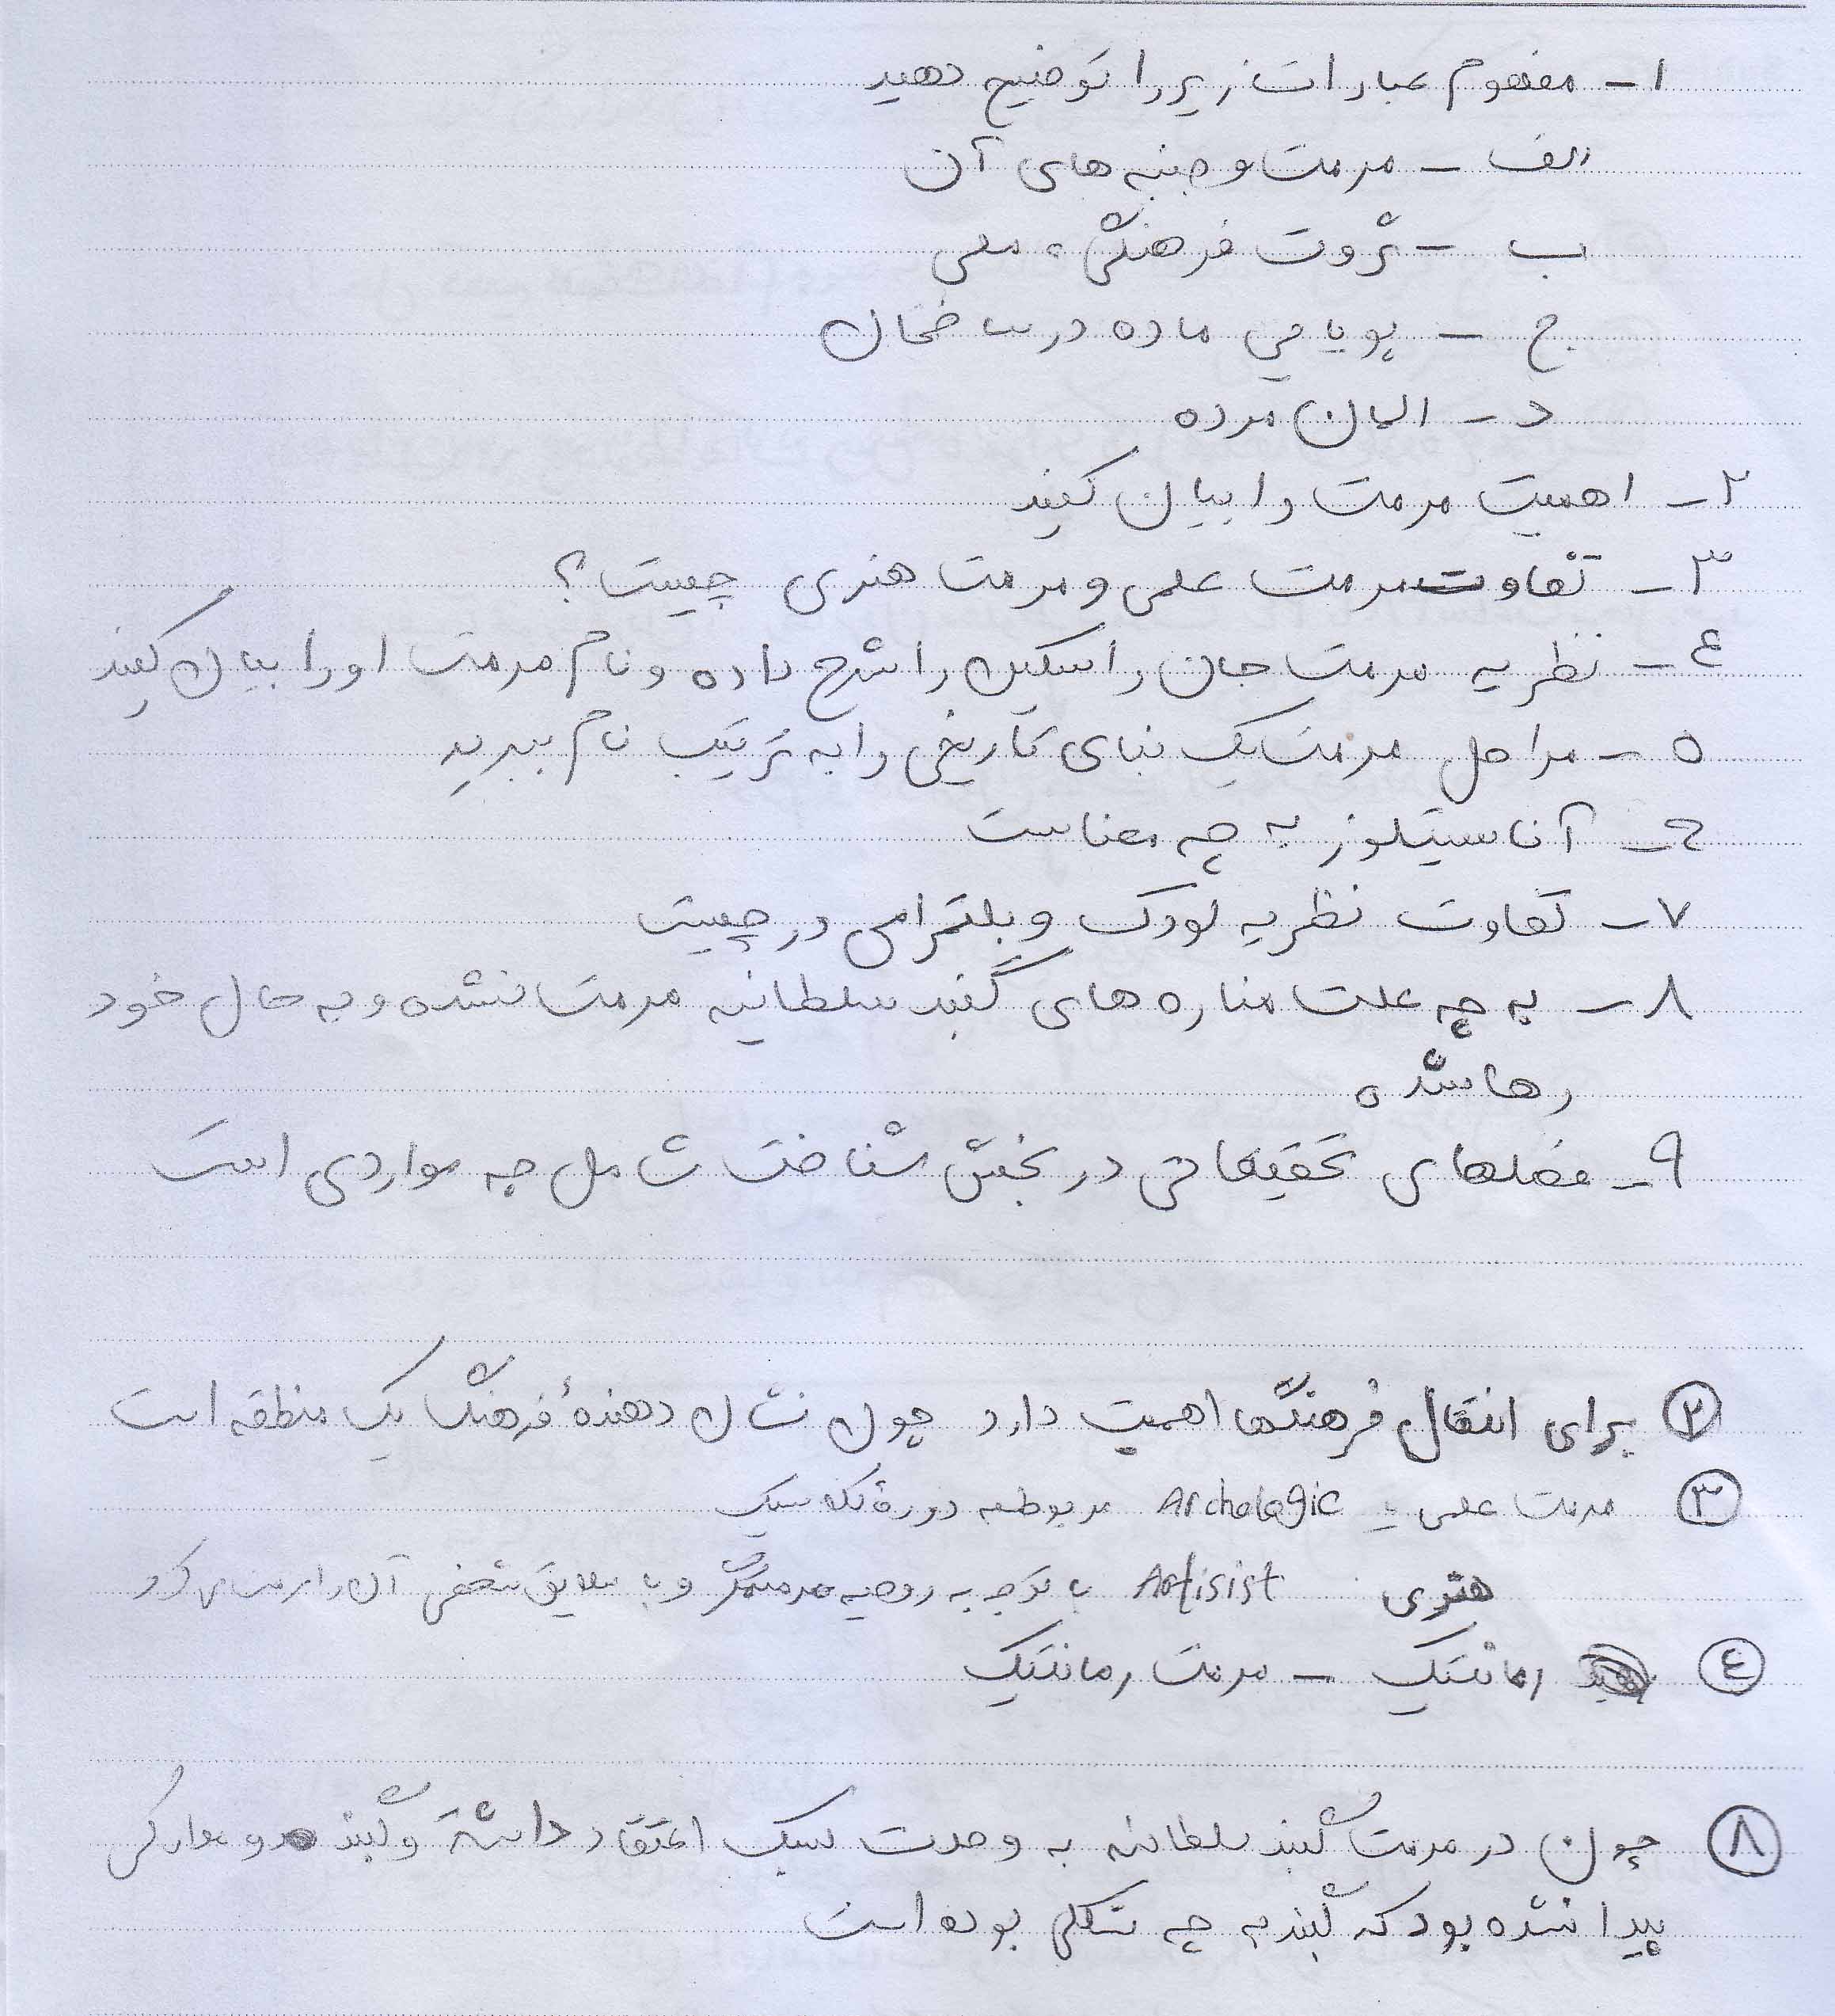 ۱ - مفهوم عبارات زیر را توضیح دهید
الف - مرمت و جنبه های آن
ب - ثروت فرهنگی، ملی
ج - پویایی ماده در ساختمان
د - المان مرده
۲ - اهمیت مرمت را بیان کنید
۳ - تفاوت مرمت علمی و مرمت هنری چیست؟
۴ - نظریه مرمت جان راسکین را شرح داده و نام مرمت او را بیان کنید
۵ - مراحل مرمت یک بنای تاریخی را به ترتیب نام ببرید
۶ - آناستیلوز به چه معناست
۷ - تفاوت نظریه لودک و بلترامی در چیست
۸ - به چه علت مناره های گنبد سلطانیه مرمت نشده و به حال خود
رها شده
۹ - فصلهای تحقیقاتی در بخش شناخت شامل چه مواردی است
۲ برای انتقال فرهنگها اهمیت دارد چون نشان دهندهٔ فرهنگ یک منطقه است
۳ مرمت علمی یا Archologic مربوط به دورهٔ کلاسیک
هنری Artisist با توجه به روحیه مرمتگر و با سلایق شخصی آن را مرمت می کرد
۴ رمانتیک - مرمت رمانتیک
۸ چون در مرمت گنبد سلطانیه به وحدت سبک اعتقاد داشته و گنبد مدارکی
پیدا نشده بود که گنبد به چه شکلی بوده است